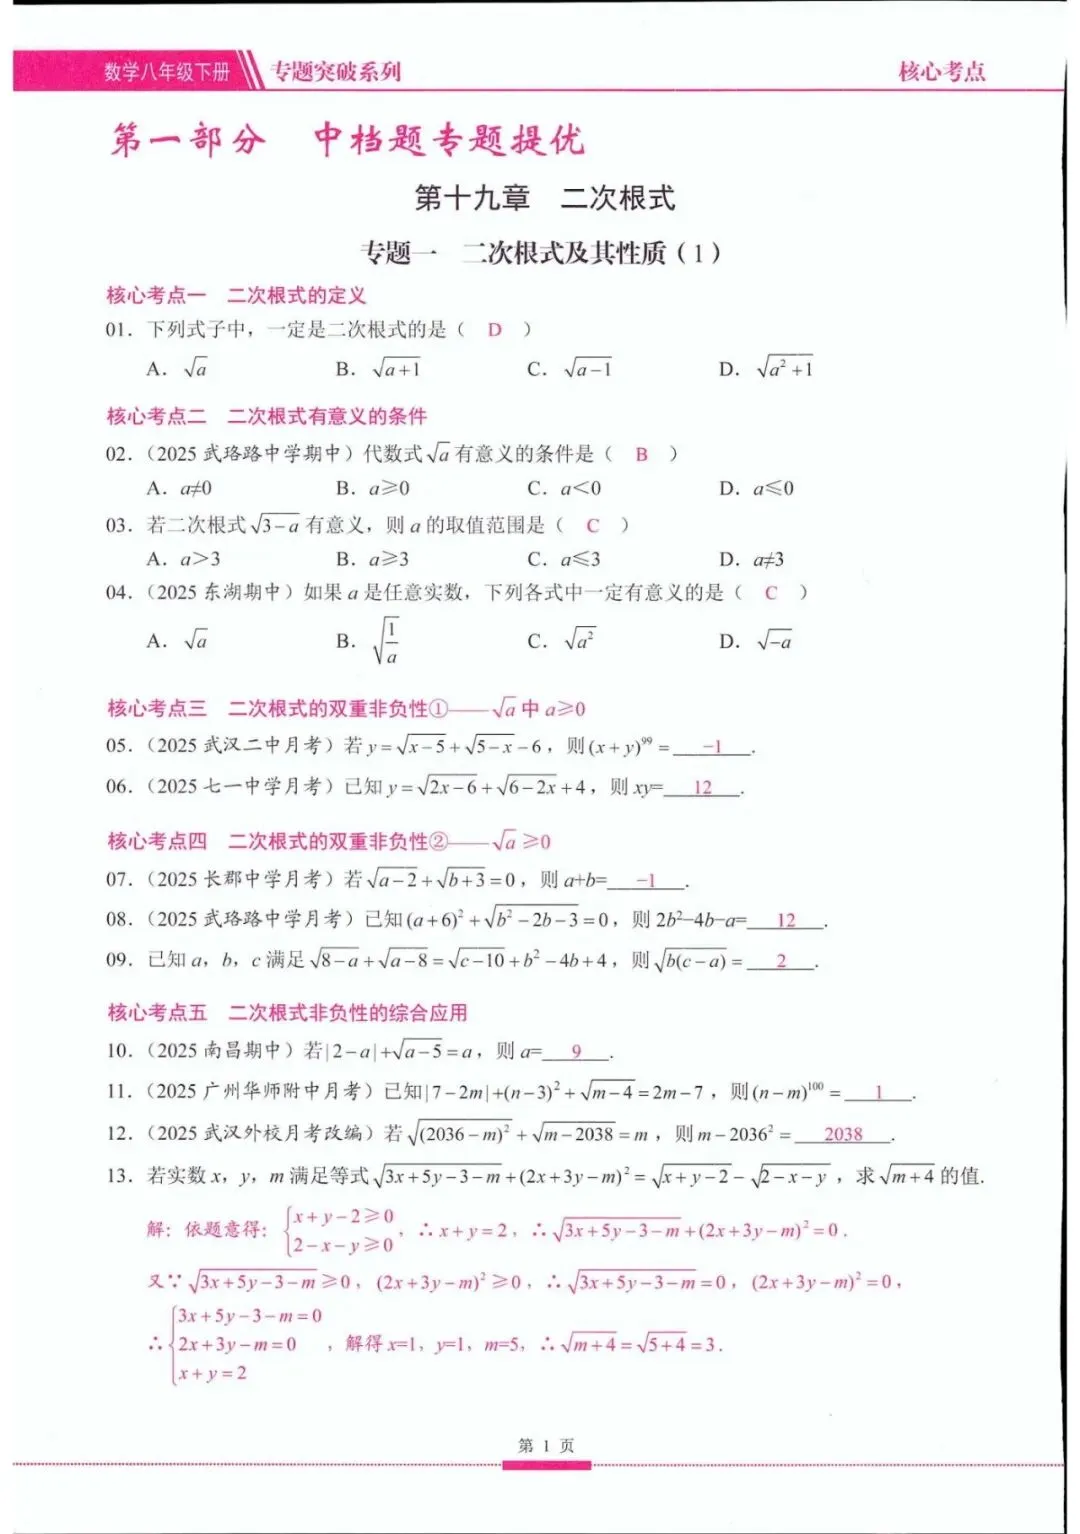 数学八年级下册 专题突破系列 核心考点
第一部分 中档题专题提优
第十九章 二次根式
专题一 二次根式及其性质（1）
核心考点一 二次根式的定义
01．下列式子中，一定是二次根式的是（ D ）
A．√a B．√(a+1) C．√(a−1) D．√(a²+1)
核心考点二 二次根式有意义的条件
02．（2025 武珞路中学期中）代数式√a 有意义的条件是（ B ）
A．a≠0 B．a≥0 C．a＜0 D．a≤0
03．若二次根式√(3−a) 有意义，则 a 的取值范围是（ C ）
A．a＞3 B．a≥3 C．a≤3 D．a≠3
04．（2025 东湖期中）如果 a 是任意实数，下列各式中一定有意义的是（ C ）
A．√a B．√(1/a) C．√(a²) D．√(−a)
核心考点三 二次根式的双重非负性①——√a 中 a≥0
05．（2025 武汉二中月考）若 y=√(x−5)+√(5−x)−6，则(x+y)⁹⁹=−1.
06．（2025 七一中学月考）已知 y=√(2x−6)+√(6−2x)+4，则 xy=12.
核心考点四 二次根式的双重非负性②——√a ≥0
07．（2025 长郡中学月考）若√(a−2)+√(b+3)=0，则 a+b=−1.
08．（2025 武珞路中学月考）已知(a+6)²+√(b²−2b−3)=0，则 2b²−4b−a=12.
09．已知 a，b，c 满足√(8−a)+√(a−8)=√(c−10)+b²−4b+4，则√(b(c−a))=2.
核心考点五 二次根式非负性的综合应用
10．（2025 南昌期中）若|2−a|+√(a−5)=a，则 a=9.
11．（2025 广州华师附中月考）已知|7−2m|+(n−3)²+√(m−4)=2m−7，则(n−m)¹⁰⁰=1.
12．（2025 武汉外校月考改编）若√((2036−m)²)+√(m−2038)=m，则 m−2036²=2038.
13．若实数 x，y，m 满足等式√(3x+5y−3−m)+(2x+3y−m)²=√(x+y−2)−√(2−x−y)，求√(m+4) 的值.
解：依题意得：{x+y−2≥0
2−x−y≥0，∴x+y=2，∴√(3x+5y−3−m)+(2x+3y−m)²=0.
又∵√(3x+5y−3−m)≥0，(2x+3y−m)²≥0，∴√(3x+5y−3−m)=0，(2x+3y−m)²=0，
{3x+5y−3−m=0
∴2x+3y−m=0，解得 x=1，y=1，m=5，∴√(m+4)=√(5+4)=3.
x+y=2
第 1 页